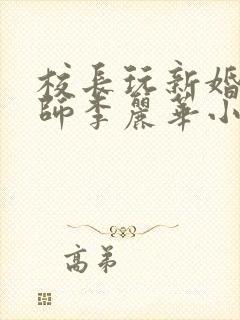 校長玩新婚
師李麗華小
高弟